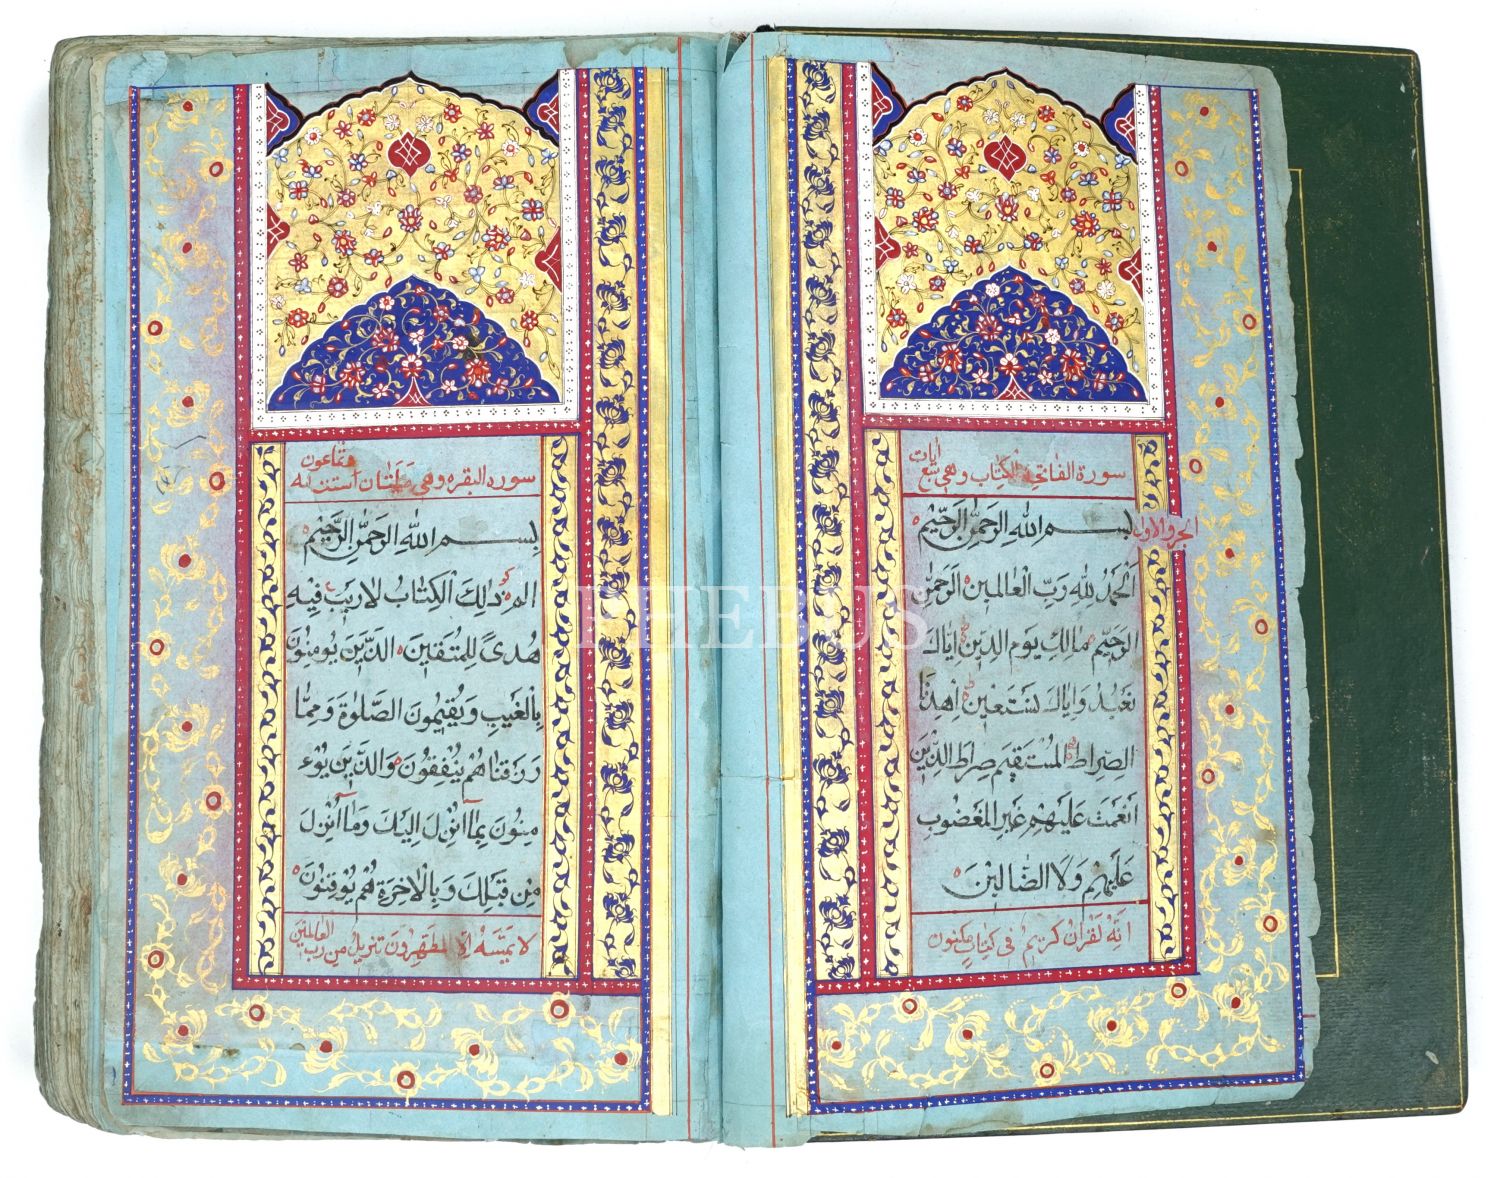 سورة الفاتحة الكتاب وهي سبع
ايات
الجزو الاول
بسم الله الرحمن الرحيم
الحمد لله رب العالمين الرحمن
الرحيم مالك يوم الدين اياك
نعبد واياك نستعين اهدنا
الصراط المستقيم صراط الذين
انعمت عليهم غير المغضوب
عليهم ولا الضالين
انه لقران كريم في كتاب مكنون
سورة البقره وهي مائتان
بسم الله الرحمن الرحيم
الم ذلك الكتاب لا ريب فيه
هدى للمتقين الذين يومنون
بالغيب ويقيمون الصلوة ومما
رزقناهم ينفقون والذين يؤ
منون بما انزل اليك وما انزل
من قبلك وبالاخرة هم يوقنون
لا يمسه الا المطهرون تنزيل من رب
العالمين
PHEBUS